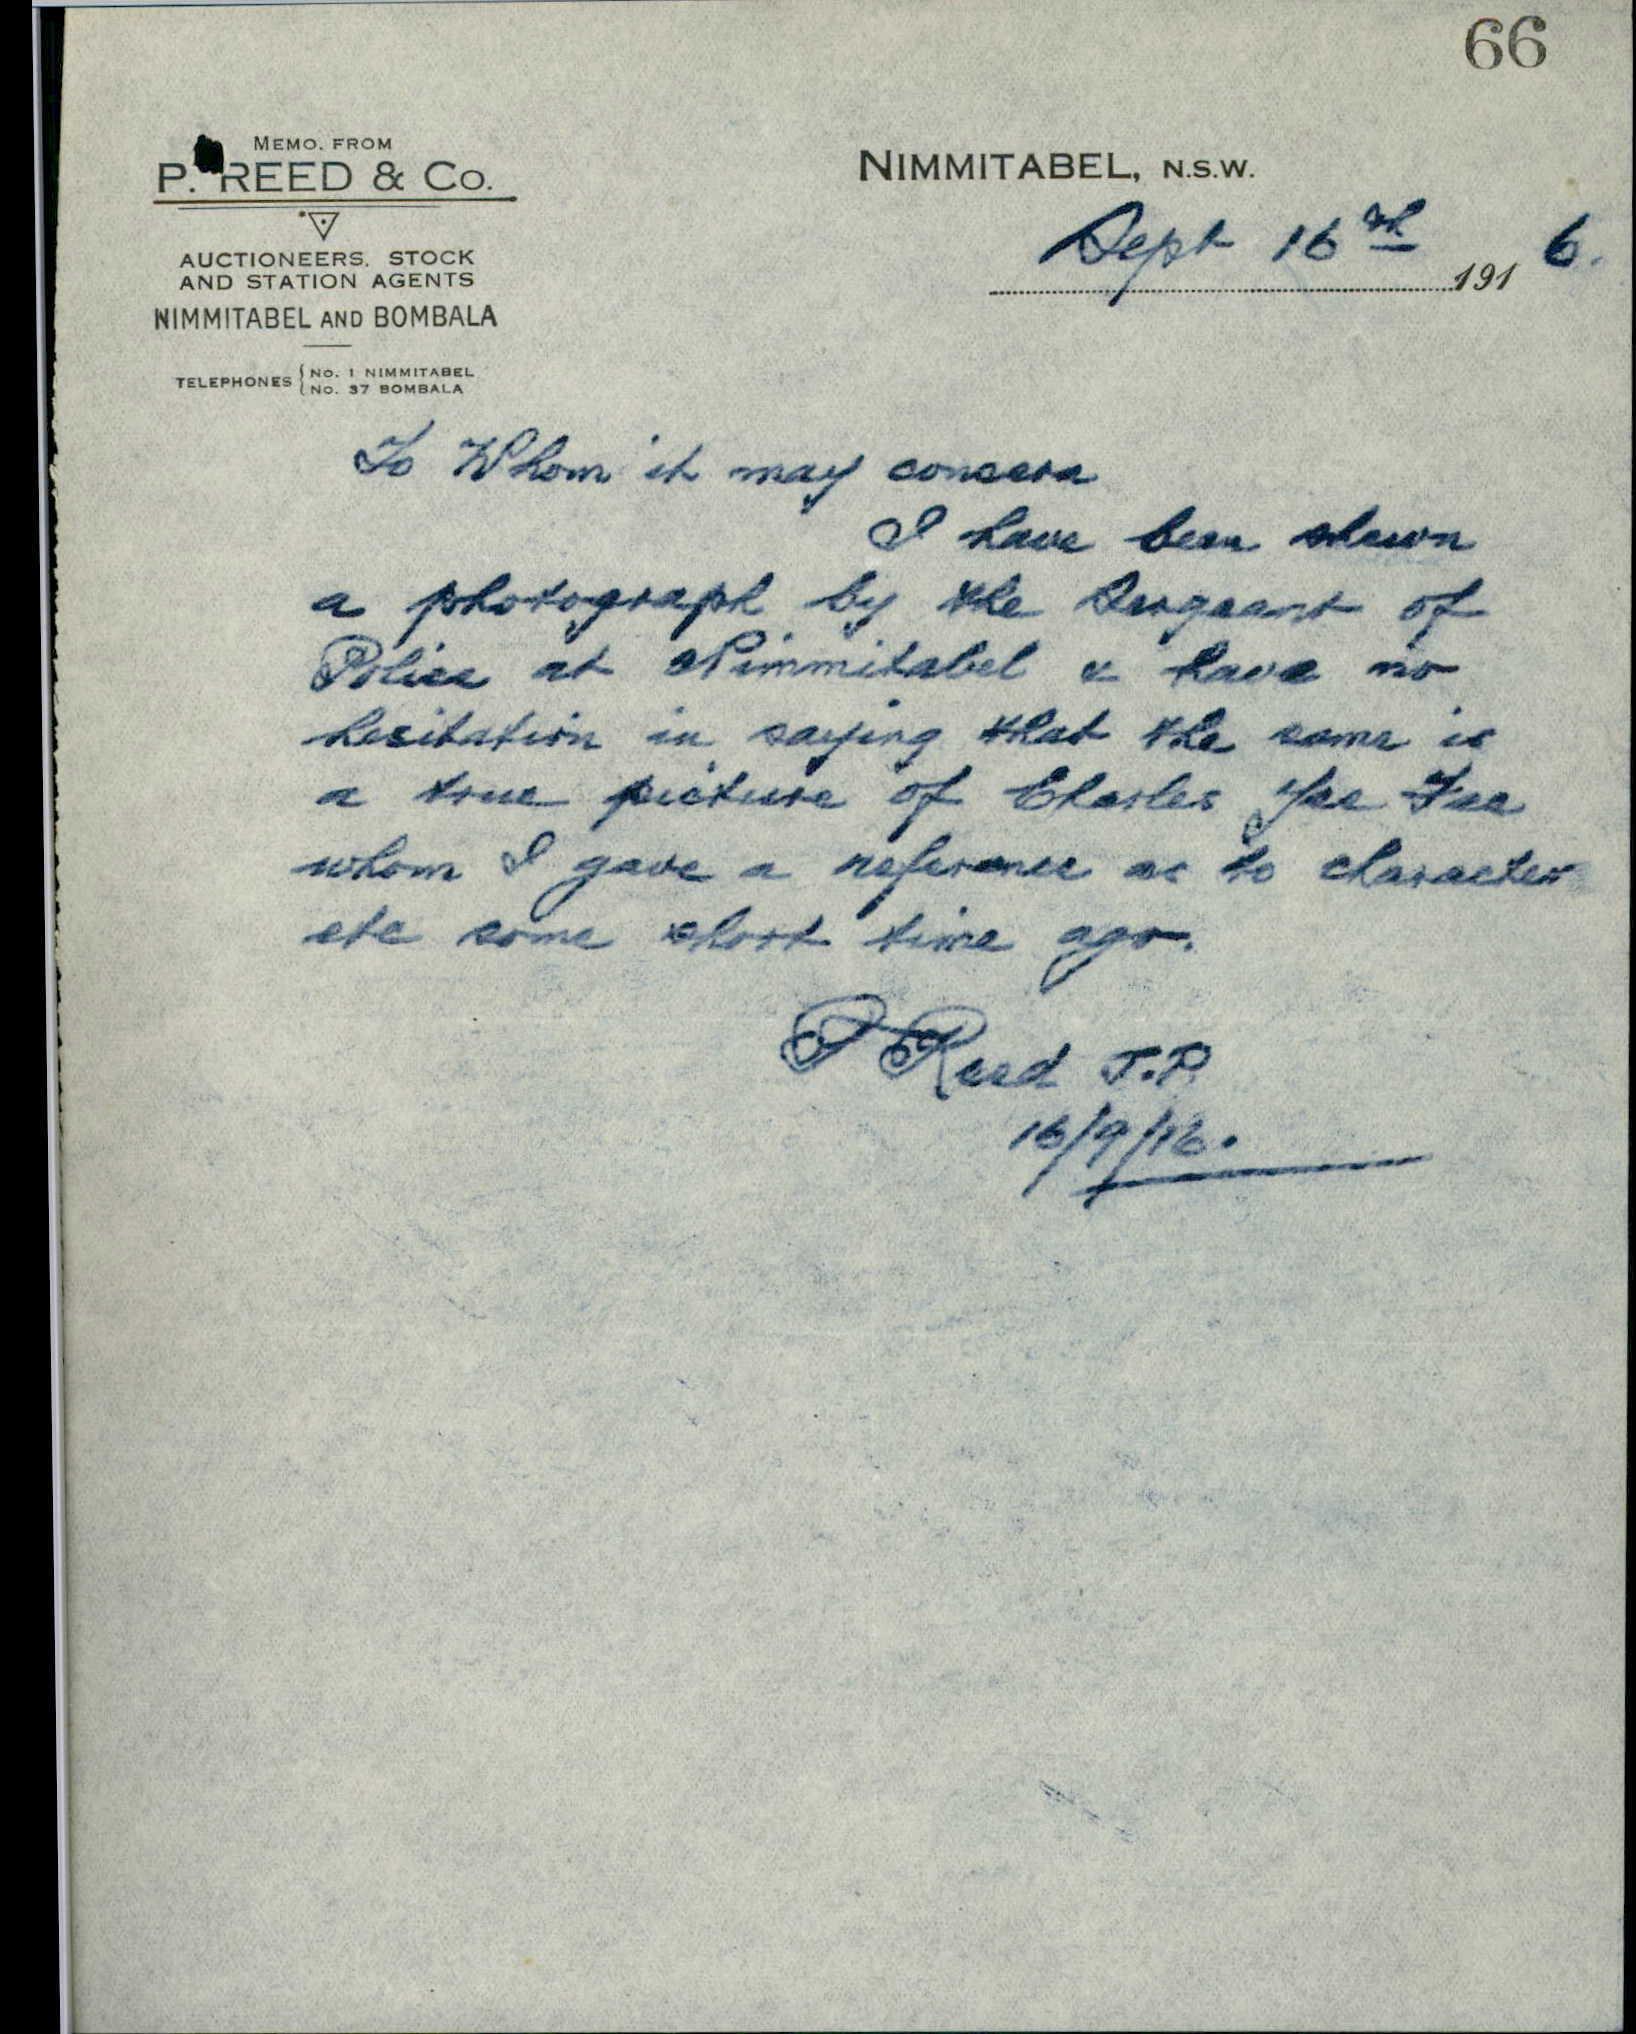 66
MEMO. FROM
P. REED & CO.
AUCTIONEERS. STOCK
AND STATION AGENTS
NIMMITABEL AND BOMBALA
TELEPHONES { NO. 1 NIMMITABEL
NO. 37 BOMBALA
NIMMITABEL, N.S.W.
Sept 16th 1916.
To Whom it may concern
I have been shewn
a photograph by the Sergeant of
Police at Nimmitabel & have no
hesitation in saying that the same is
a true picture of Charles Yee Fee
whom I gave a reference as to character
etc some short time ago.
P Reed J.P.
16/9/16.